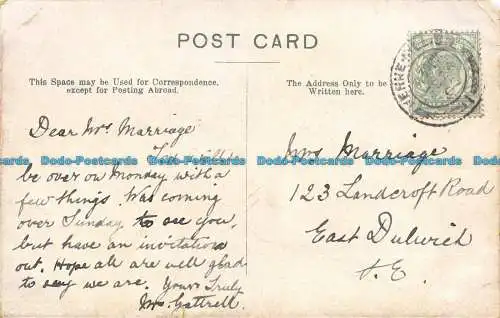 POST CARD
This Space may be Used for Correspondence,
except for Posting Abroad.
The Address Only to be
Written here.
Dear Mrs Marriage
will
be over on Monday with a
few things. Was coming
over Sunday to see you,
but have an invitation
out. Hope all are well glad
to say we are. Yours Truly
Mrs Gattrell.
Mrs Marriage
123 Landcroft Road
East Dulwich
S.E.
Dodo-Postcards Dodo-Postcards Dodo-Postcards Dodo-Postcards
Dodo-Postcards Dodo-Postcards Dodo-Postcards Dodo-Postcards